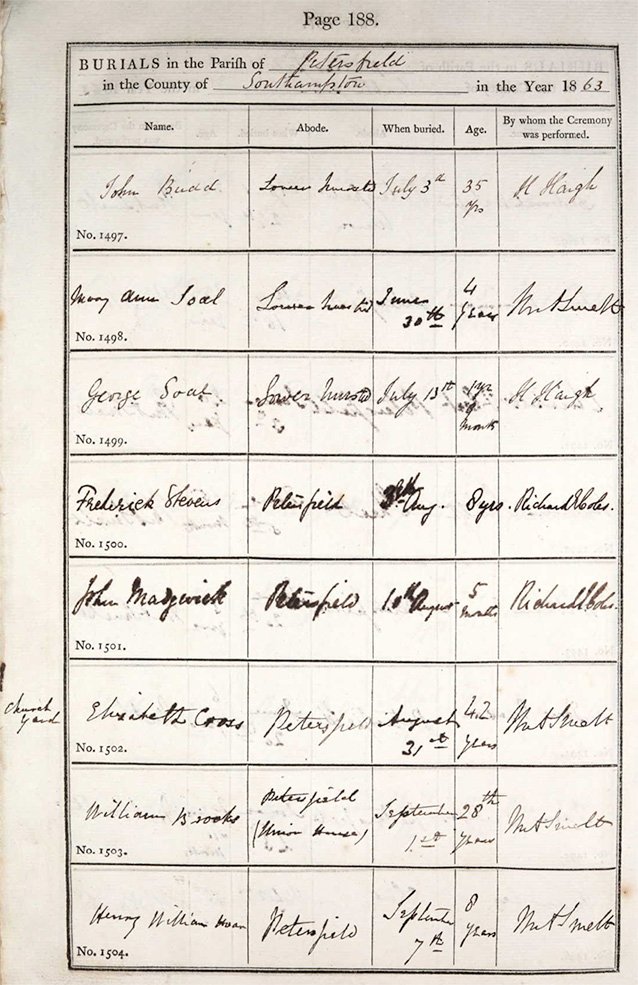 Page 188.
BURIALS in the Parish of Petersfield
in the County of Southampton in the Year 1863
Name. Abode. When buried. Age. By whom the Ceremony was performed.
John Budd Lower July 3rd 35 yrs H Haigh
No. 1497.
Mary Ann Soal Lower June 30th 4 years Smelt
No. 1498.
George Soal Lower July 13th 1 yr months H Haigh
No. 1499.
Frederick Stevens Petersfield Aug. 8 yrs. Richard Coles.
No. 1500.
John Madgwick Petersfield 10th August 5 months Richard Coles.
No. 1501.
Church yard
Elizabeth Cross Petersfield August 31st 42 years Smelt
No. 1502.
William Brooks Petersfield (Union House) September 1st 28th years Smelt
No. 1503.
Henry William Petersfield September 7th 8 years Smelt
No. 1504.